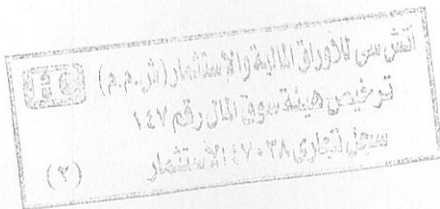 اتش سي للأوراق المالية والاستثمار (ش.م.م)
ترخيص هيئة سوق المال رقم ١٤٧
سجل تجاري ١٤٧٠٣٨ الاستثمار
(٢)